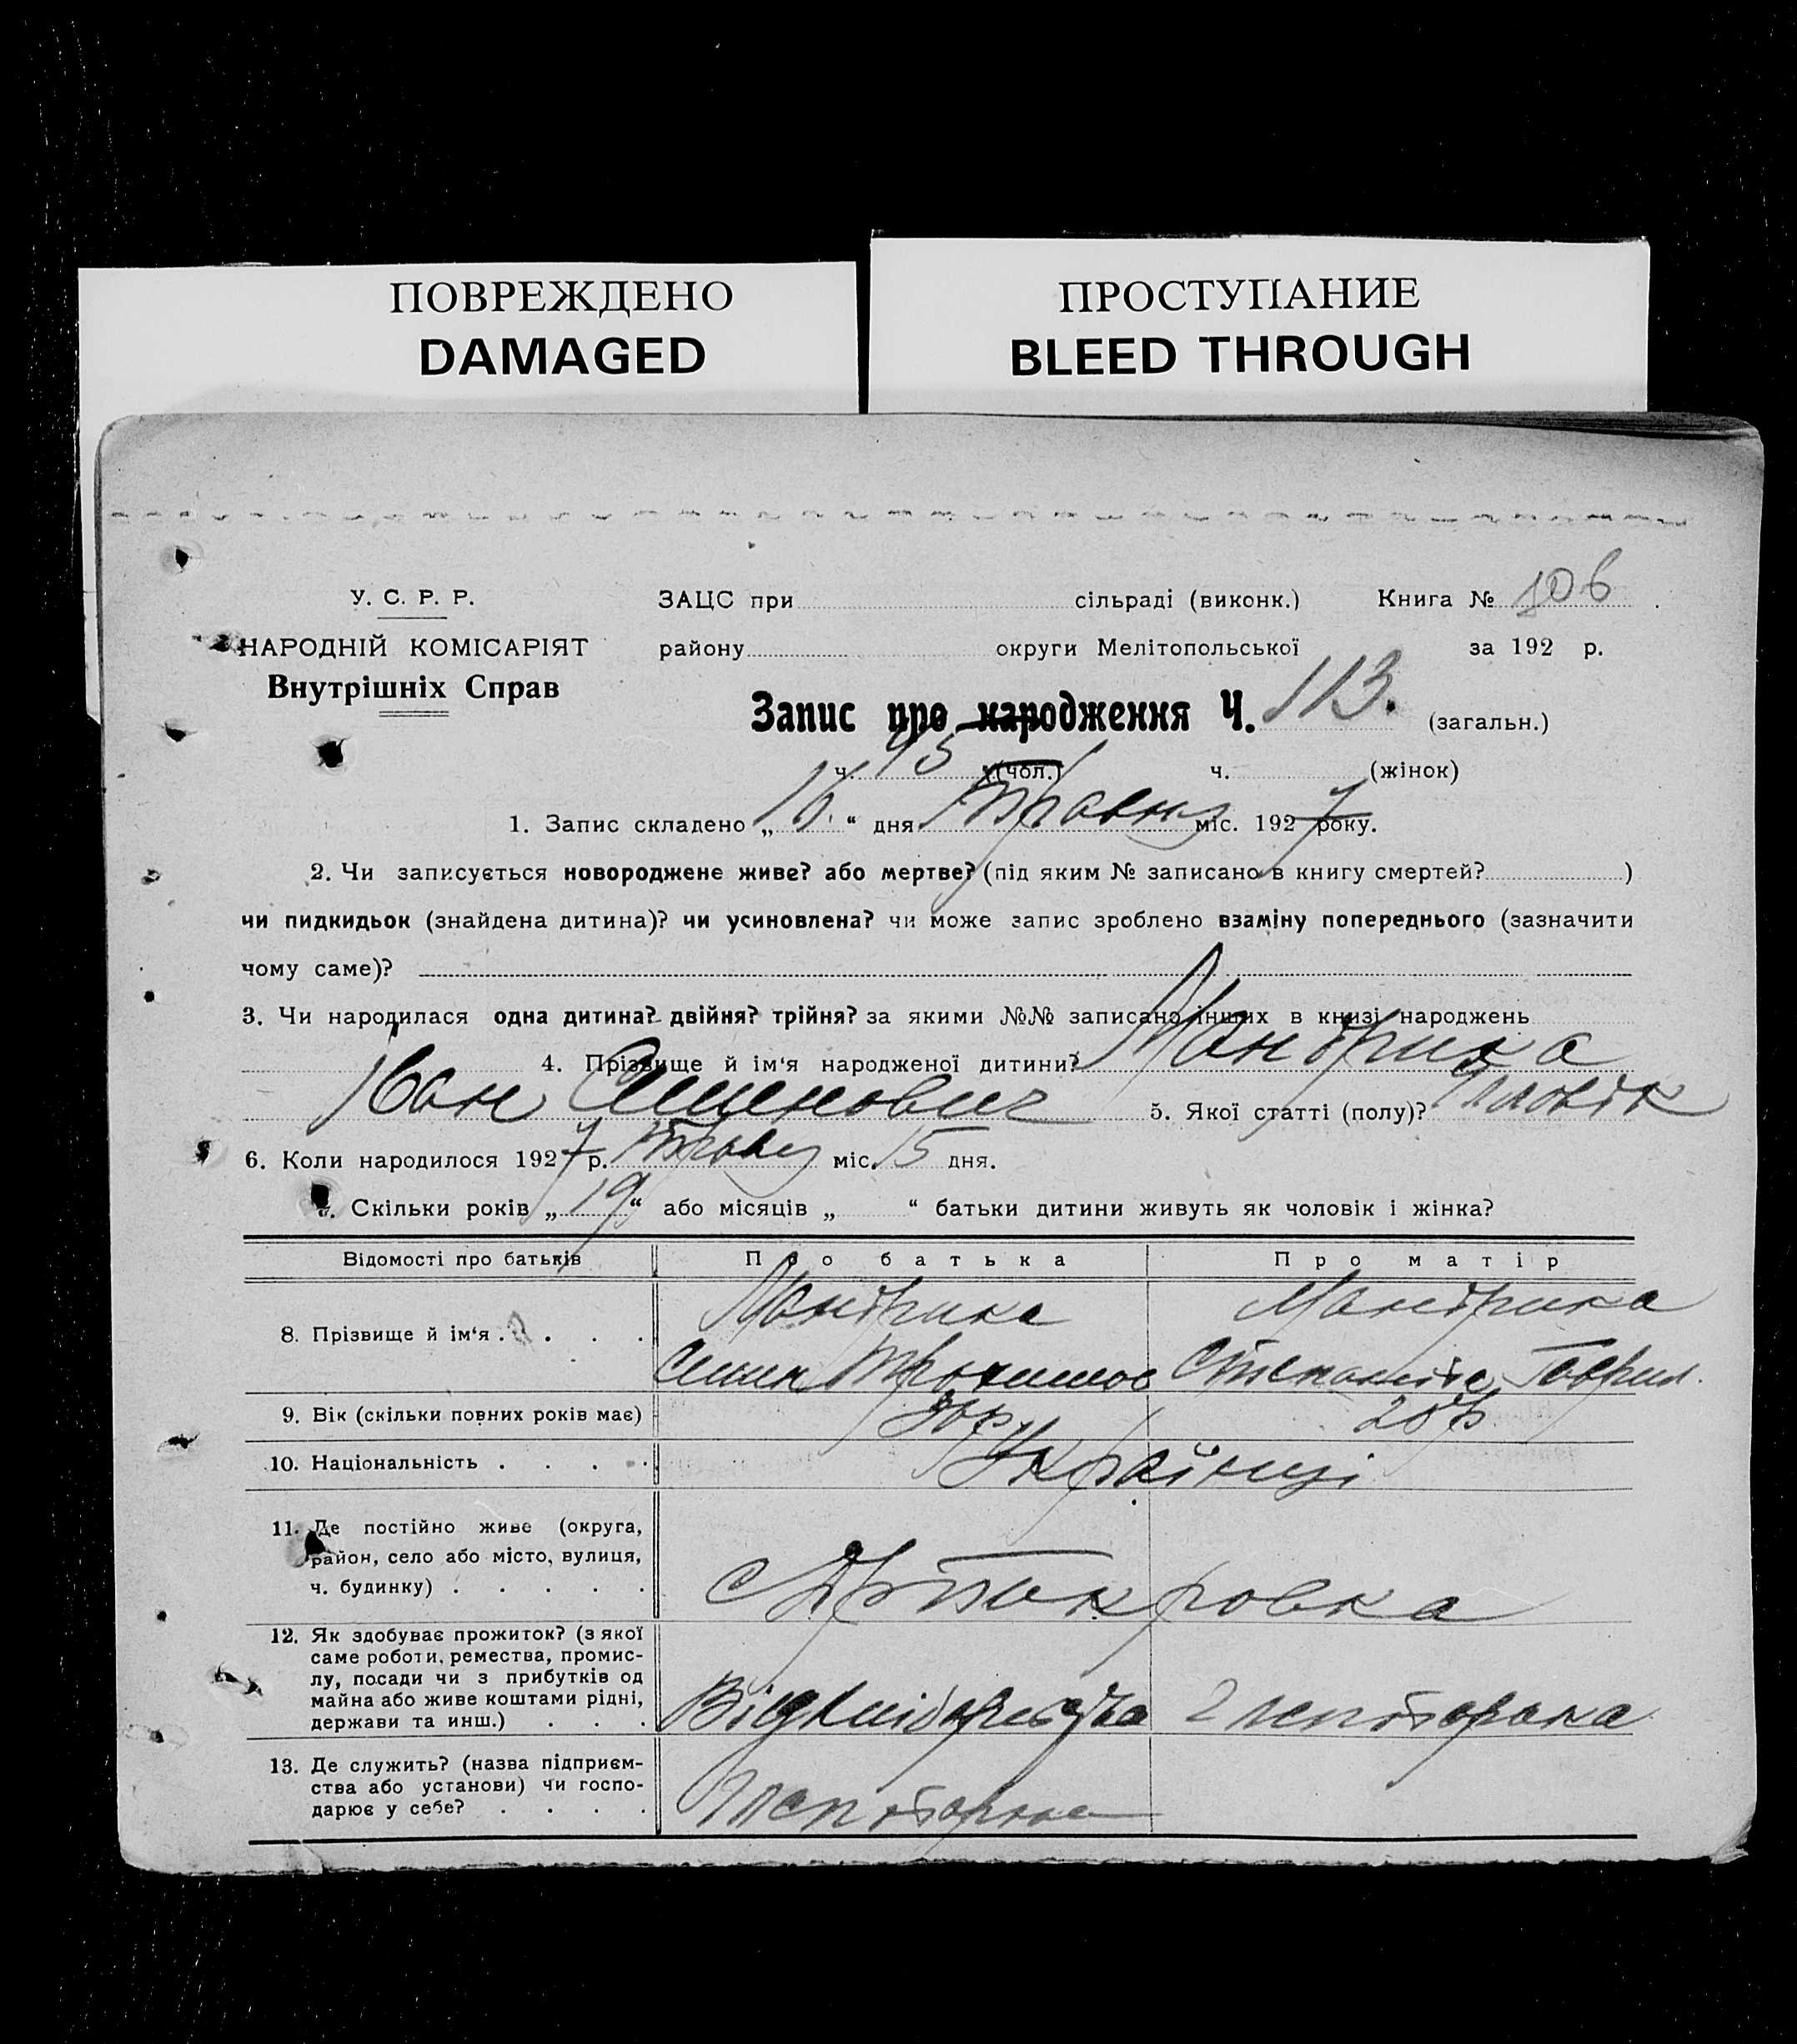 ПОВРЕЖДЕНО
DAMAGED
ПРОСТУПАНИЕ
BLEED THROUGH
У. С. Р. Р.
НАРОДНІЙ КОМІСАРІЯТ
Внутрішніх Справ
ЗАЦС при сільраді (виконк.) Книга № 106
району округи Мелітопольської за 192 р.
Запис про народження Ч. 113. (загальн.)
ч. 45 (чол.) ч. (жінок)
1. Запис складено „16.“ дня Травня міс. 1927 року.
2. Чи записується новороджене живе? або мертве? (під яким № записано в книгу смертей? )
чи пидкидьок (знайдена дитина)? чи усиновлена? чи може запис зроблено взаміну попереднього (зазначити
чому саме)?
3. Чи народилася одна дитина? двійня? трійня? за якими №№ записано інших в книзі народжень
4. Прізвище й ім‘я народженої дитини? Мандрика
Іван Семенович 5. Якої статті (полу)? Чоловік
6. Коли народилося 1927 р. Травня міс. 15 дня.
7. Скільки років „19“ або місяців „ “ батьки дитини живуть як чоловік і жінка?
Відомості про батьків Про батька Про матір
8. Прізвище й ім‘я . . . . Мандрика Мандрика
Семен Трохимов Степанида Гаврил.
9. Вік (скільки повних років має)
10. Національність . . . . Українці
11. Де постійно живе (округа,
район, село або місто, вулиця,
ч. будинку) . . . . .
12. Як здобуває прожиток? (з якої
саме роботи, ремества, промис-
лу, посади чи з прибутків од
майна або живе коштами рідні,
держави та инш.) . . .
Від хліборобства
13. Де служить? (назва підприєм-
ства або установи) чи госпо-
дарює у себе? . . . .